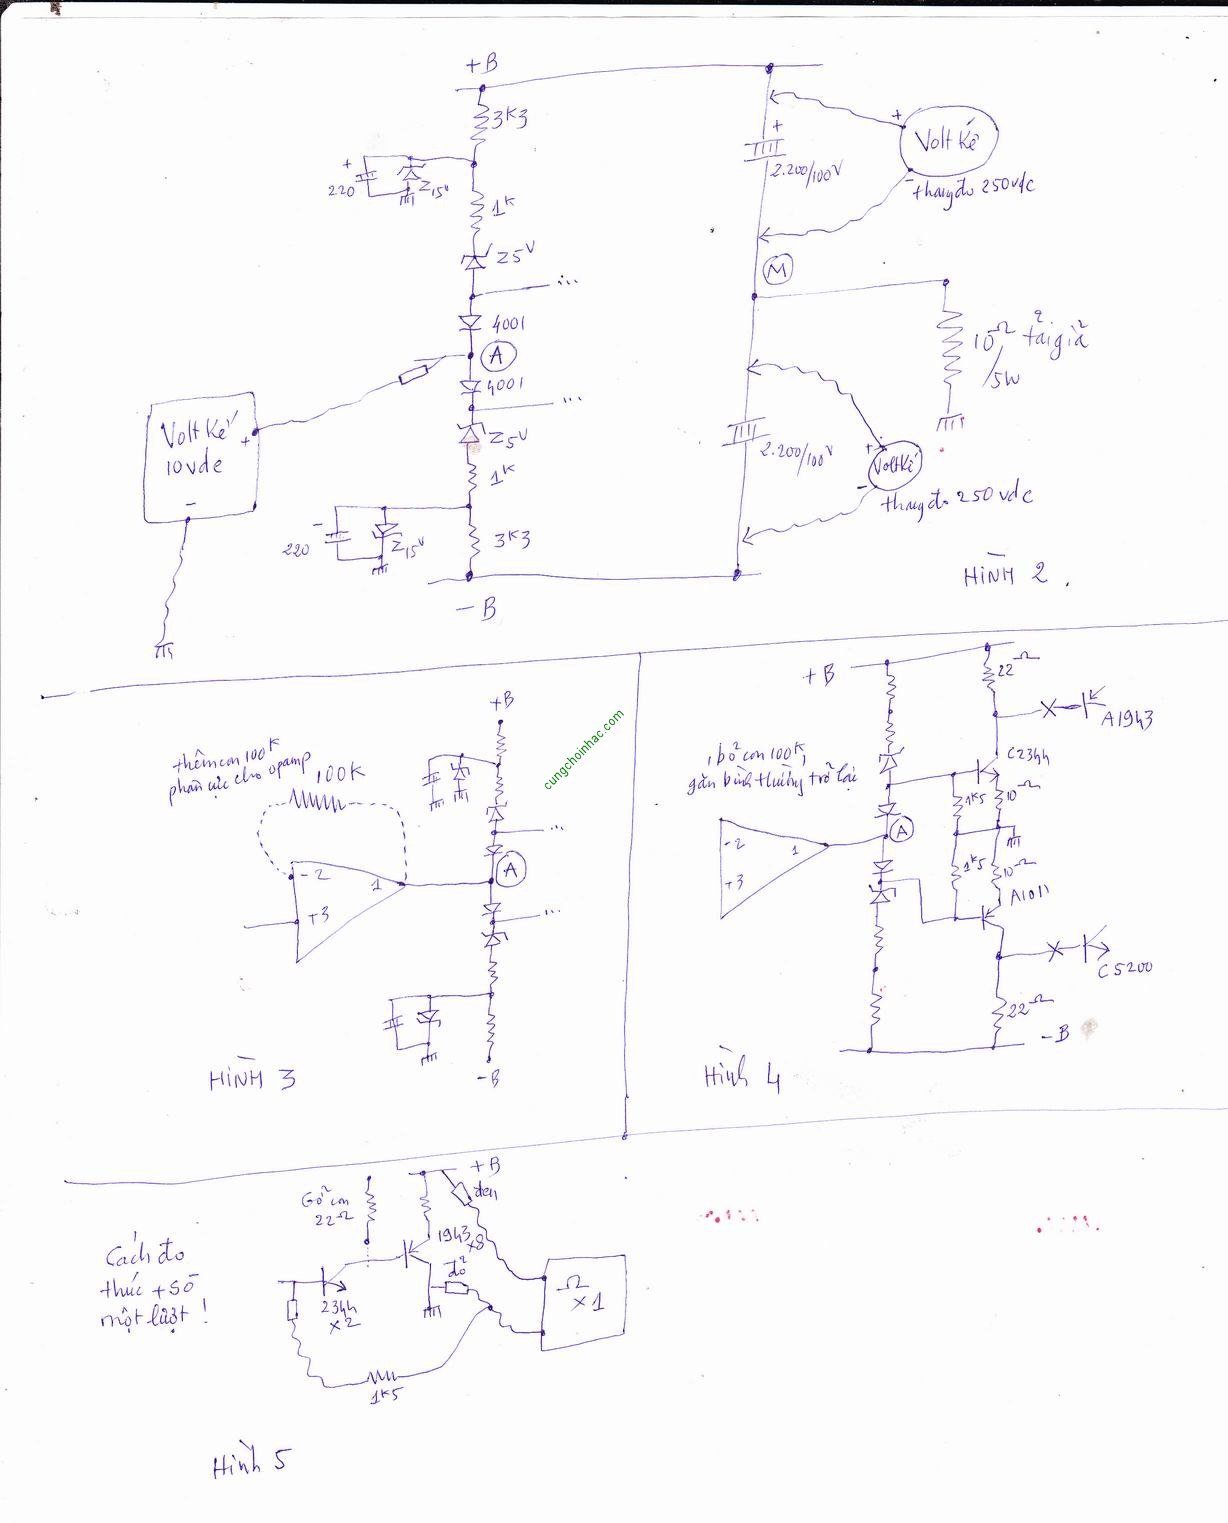 +B
3K3
+
220
Z15V
1K
Z5V
...
4001
A
4001
...
Z5V
1K
-
220
Z15V
3K3
-B
Volt Kế
10vdc
+
-
+
2.200/100V
M
2.200/100V
+
Volt Kế
-
thang đo 250vdc
10Ω tải giả
/5W
+
Volt Kế
-
thang đo 250vdc
HÌNH 2.
thêm con 100K
phân cực cho opamp
100K
-2
1
+3
+B
...
A
...
-B
HÌNH 3
cungchoinhac.com
+B
22Ω
A1943
bỏ con 100K,
gắn bình thường trở lại
C2344
1K5
10Ω
-2
1
+3
A
1K5
10Ω
A1011
C5200
22Ω
-B
Hình 4
Cách đo
thúc + sò
một lượt!
Gỡ con
22Ω
+B
đen
1943
x8
đỏ
2344
x2
Ω
x1
1K5
Hình 5